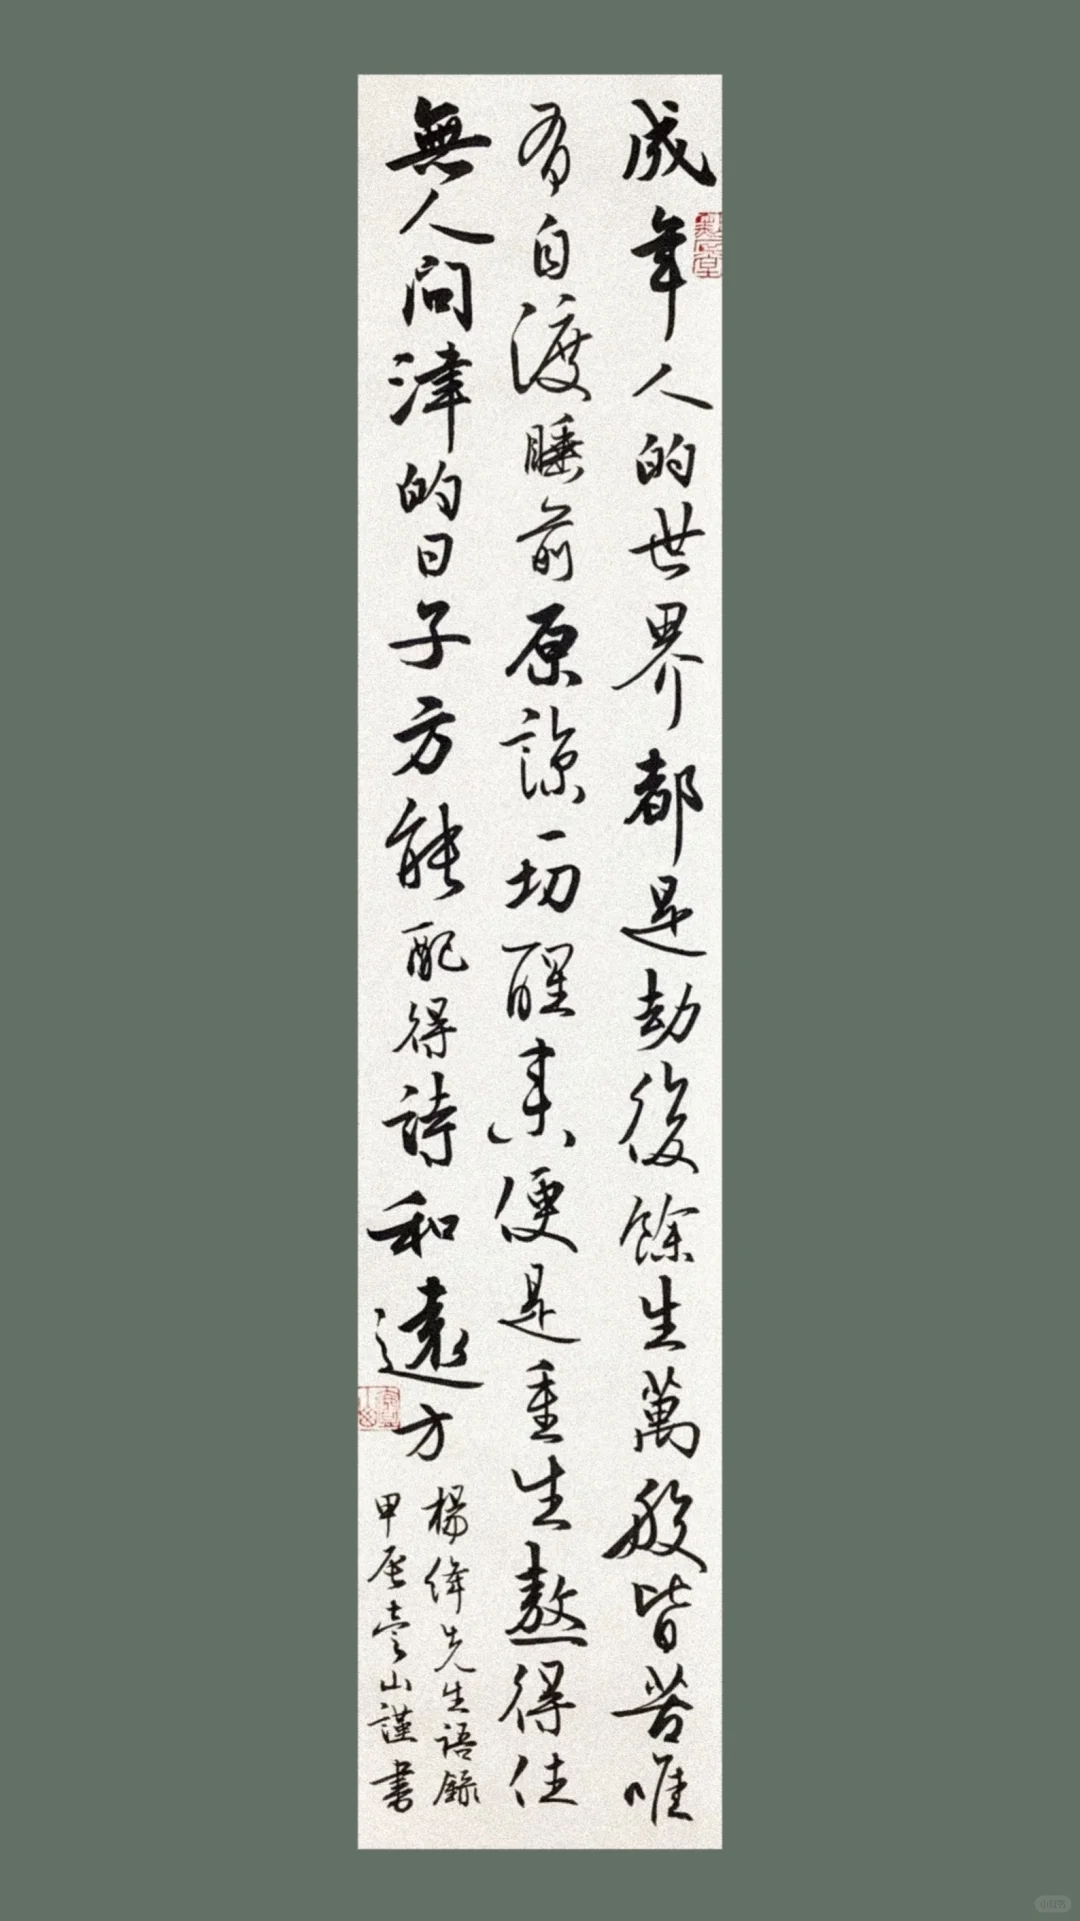 成年人的世界都是劫後餘生萬般皆苦唯
有自渡睡前原諒一切醒来便是重生熬得住
無人問津的日子方能配得詩和遠方
楊絳先生語錄
甲辰壹山謹書
小红书